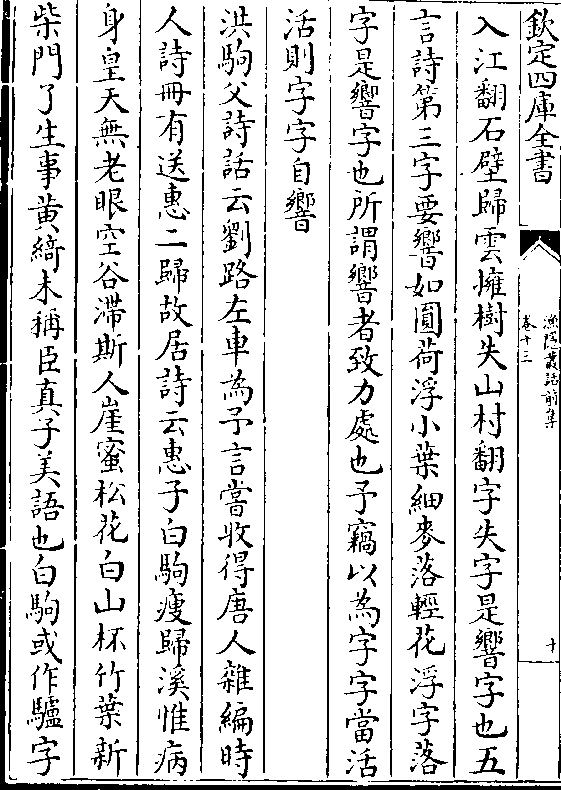 欽定四庫全書
漁隱叢話前集
卷十三
十
入江翻石壁歸雲擁樹失山村翻字失字是響字也五
言詩第三字要響如圓荷浮小葉細麥落輕花浮字落
字是響字也所謂響者致力處也予竊以為字字當活
活則字字自響
洪駒父詩話云劉路左車為予言嘗收得唐人雜編時
人詩冊有送惠二歸故居詩云惠子白駒瘦歸溪惟病
身皇天無老眼空谷滯斯人崖蜜松花白山杯竹葉新
柴門了生事黃綺未稱臣真子美語也白駒或作驢字